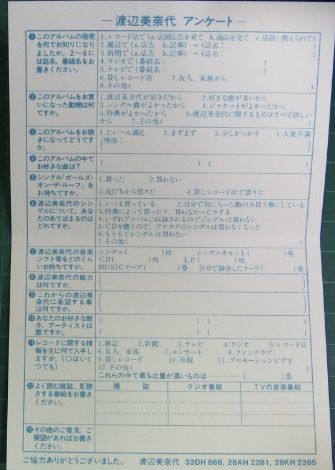 ─渡辺美奈代 アンケート─
❶このアルバムの発売を何でお知りになりましたか。2〜6には誌名、番組名をお書きください。
1.レコード店で(a.店頭広告を見て b.商品を見て c.店員に教えられて)
2.雑誌で(a.広告 b.記事)→(誌名: )
3.新聞で(a.広告 b.記事)→(誌名: )
4.ラジオで(番組名: )
5.テレビで(番組名: )
6.貸しレコード店 7.友人、家族から
8.その他( )
❷このアルバムをお買いになった動機は何ですか。
1.渡辺美奈代が好きだから 2.好きな曲が多いから
3.シングル曲がよかったから 4.ジャケットがよかったから
5.特典がよかったから 6.渡辺美奈代に関するものはすべて欲しいから
7.その他( )
❸このアルバムをお聴きになってどうですか。
1.たいへん満足 2.まずまず 3.少しがっかり 4.大変不満
(理由: )
❹このアルバムの中でお好きな曲は?
❺シングル「ガールズ・オン・ザ・ルーフ」をお持ちですか。
1.買った 2.買わない
3.友だちから借りた 4.貸しレコード店で借りた
❻渡辺美奈代のシングルについて、あなたのあてはまるのはどれですか。
1.いつも買っている 2.自分で気に入った曲のみ買う事にしている
3.特典によって買ったり、買わなかったりする
4.いずれアルバムに収録されるのでシングルは買わない
5.CDを聴くので、アナログのシングルは買わなくなった
6.もともとシングルは買わない
7.その他( )
❼渡辺美奈代の音楽ソフト等をどのくらいお持ちですか。
シングル( )枚 シングルカセット( )巻
CD( )枚 LP( )枚
MUSICテープ( )巻 自分で録音したテープ( )巻
❽渡辺美奈代の魅力は何ですか。
❾これからの渡辺美奈代に希望する事は何ですか。
❿あなたのお好きな歌手、アーティストは誰ですか。
⓫レコードに関する情報を主に何で入手しますか。(○はいくつでも)
1.雑誌 2.新聞 3.テレビ 4.ラジオ 5.レコード店
6.友人、家族 7.コンサート 8.ファンクラブ
9.貸しレコード 10.有線 11.プロモーションビデオ
12.その他( )
これらの中で最も比重が高いものは( )
⓬よく読む雑誌、見聴きする番組をお書きください。
雑 誌 ラジオ番組 TVの音楽番組
⓭その他のご意見、ご要望があればお書きください。
ご協力ありがとうございました。 渡辺美奈代 32DH 868, 28AH 2281, 28KH 2395